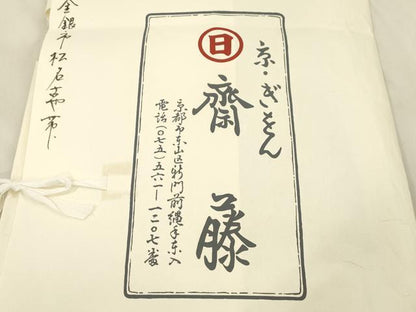 京・ぎをん
日
齋藤
京都市東山区新門前縄手東入
電話(〇七五)五六一―一二〇七番
金銀市松石だたみ帯